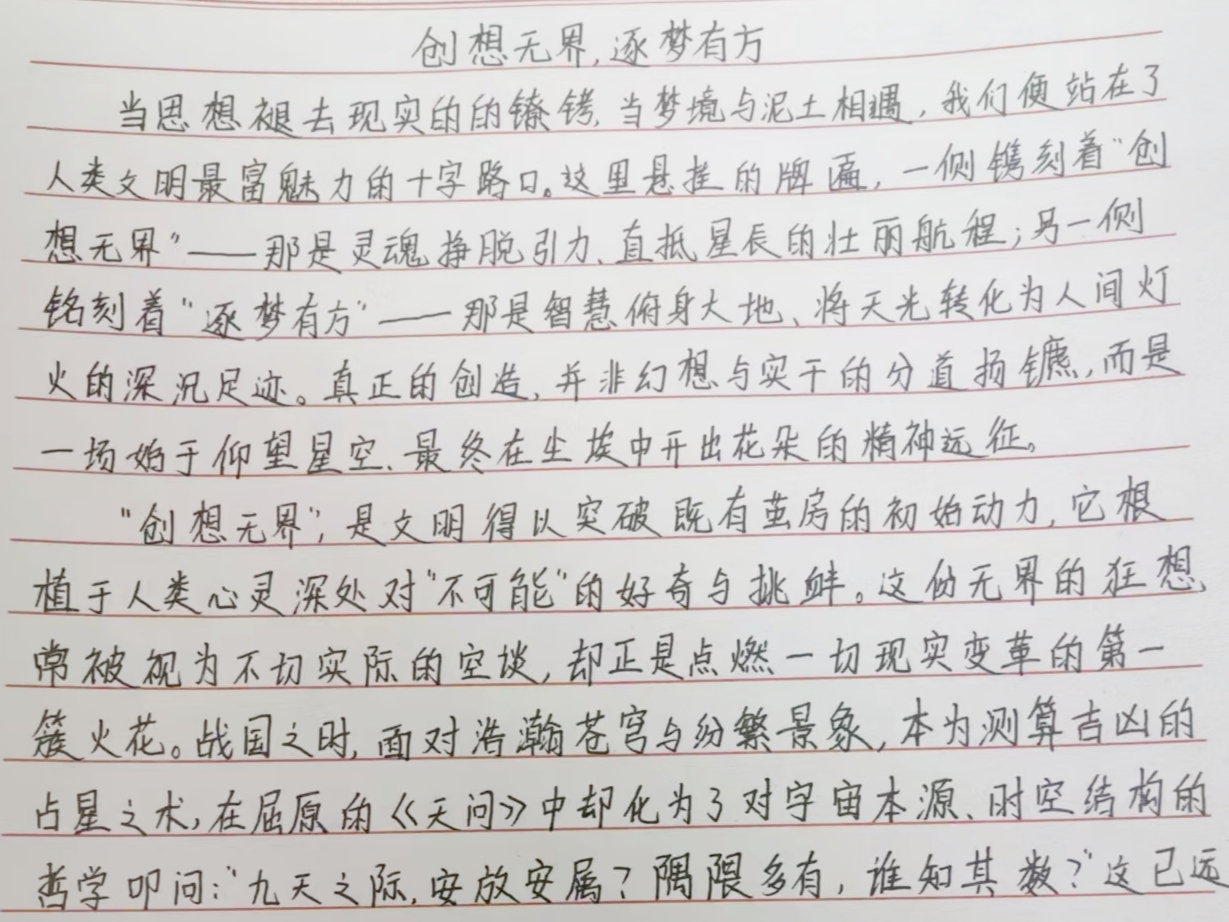 创想无界,逐梦有方
当思想褪去现实的的镣铐,当梦境与泥土相遇,我们便站在了
人类文明最富魅力的十字路口。这里悬挂的牌匾,一侧镌刻着“创
想无界”——那是灵魂挣脱引力、直抵星辰的壮丽航程;另一侧
铭刻着“逐梦有方”——那是智慧俯身大地、将天光转化为人间灯
火的深沉足迹。真正的创造,并非幻想与实干的分道扬镳,而是
一场始于仰望星空、最终在尘埃中开出花朵的精神远征。
“创想无界”,是文明得以突破既有茧房的初始动力,它根
植于人类心灵深处对“不可能”的好奇与挑衅。这份无界的狂想,
常被视为不切实际的空谈,却正是点燃一切现实变革的第一
簇火花。战国之时,面对浩瀚苍穹与纷繁景象,本为测算吉凶的
占星之术,在屈原的《天问》中却化为了对宇宙本源、时空结构的
哲学叩问:“九天之际,安放安属?隅隈多有,谁知其数?”这已远